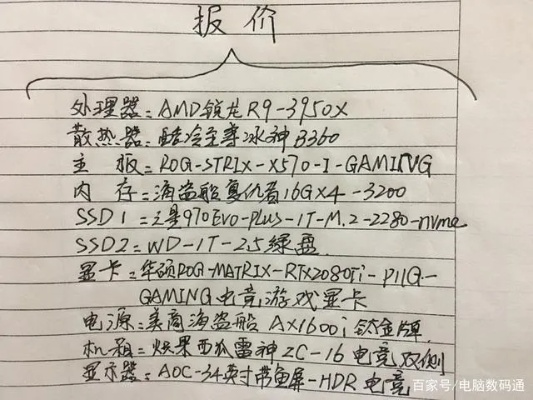 报价
处理器:AMD锐龙R9-3950X
散热器:酷冷至尊冰神B360
主板:ROG-STRIX-X570-I-GAMING
内存:海盗船复仇者16G×4-3200
SSD1=三星970Evo-plus-1T-M.2-2280-nvme
SSD2=WD-1T-2.5绿盘
显卡:华硕ROG-MATRIX-RTX2080Ti-P11G-
GAMING电竞游戏显卡
电源:美商海盗船 AX1600i 钛金牌
机箱:炫果西狐雷神ZC-16电竞双侧
显示器:AOC-34英寸带鱼屏-HDR电竞
百家号/电脑数码通